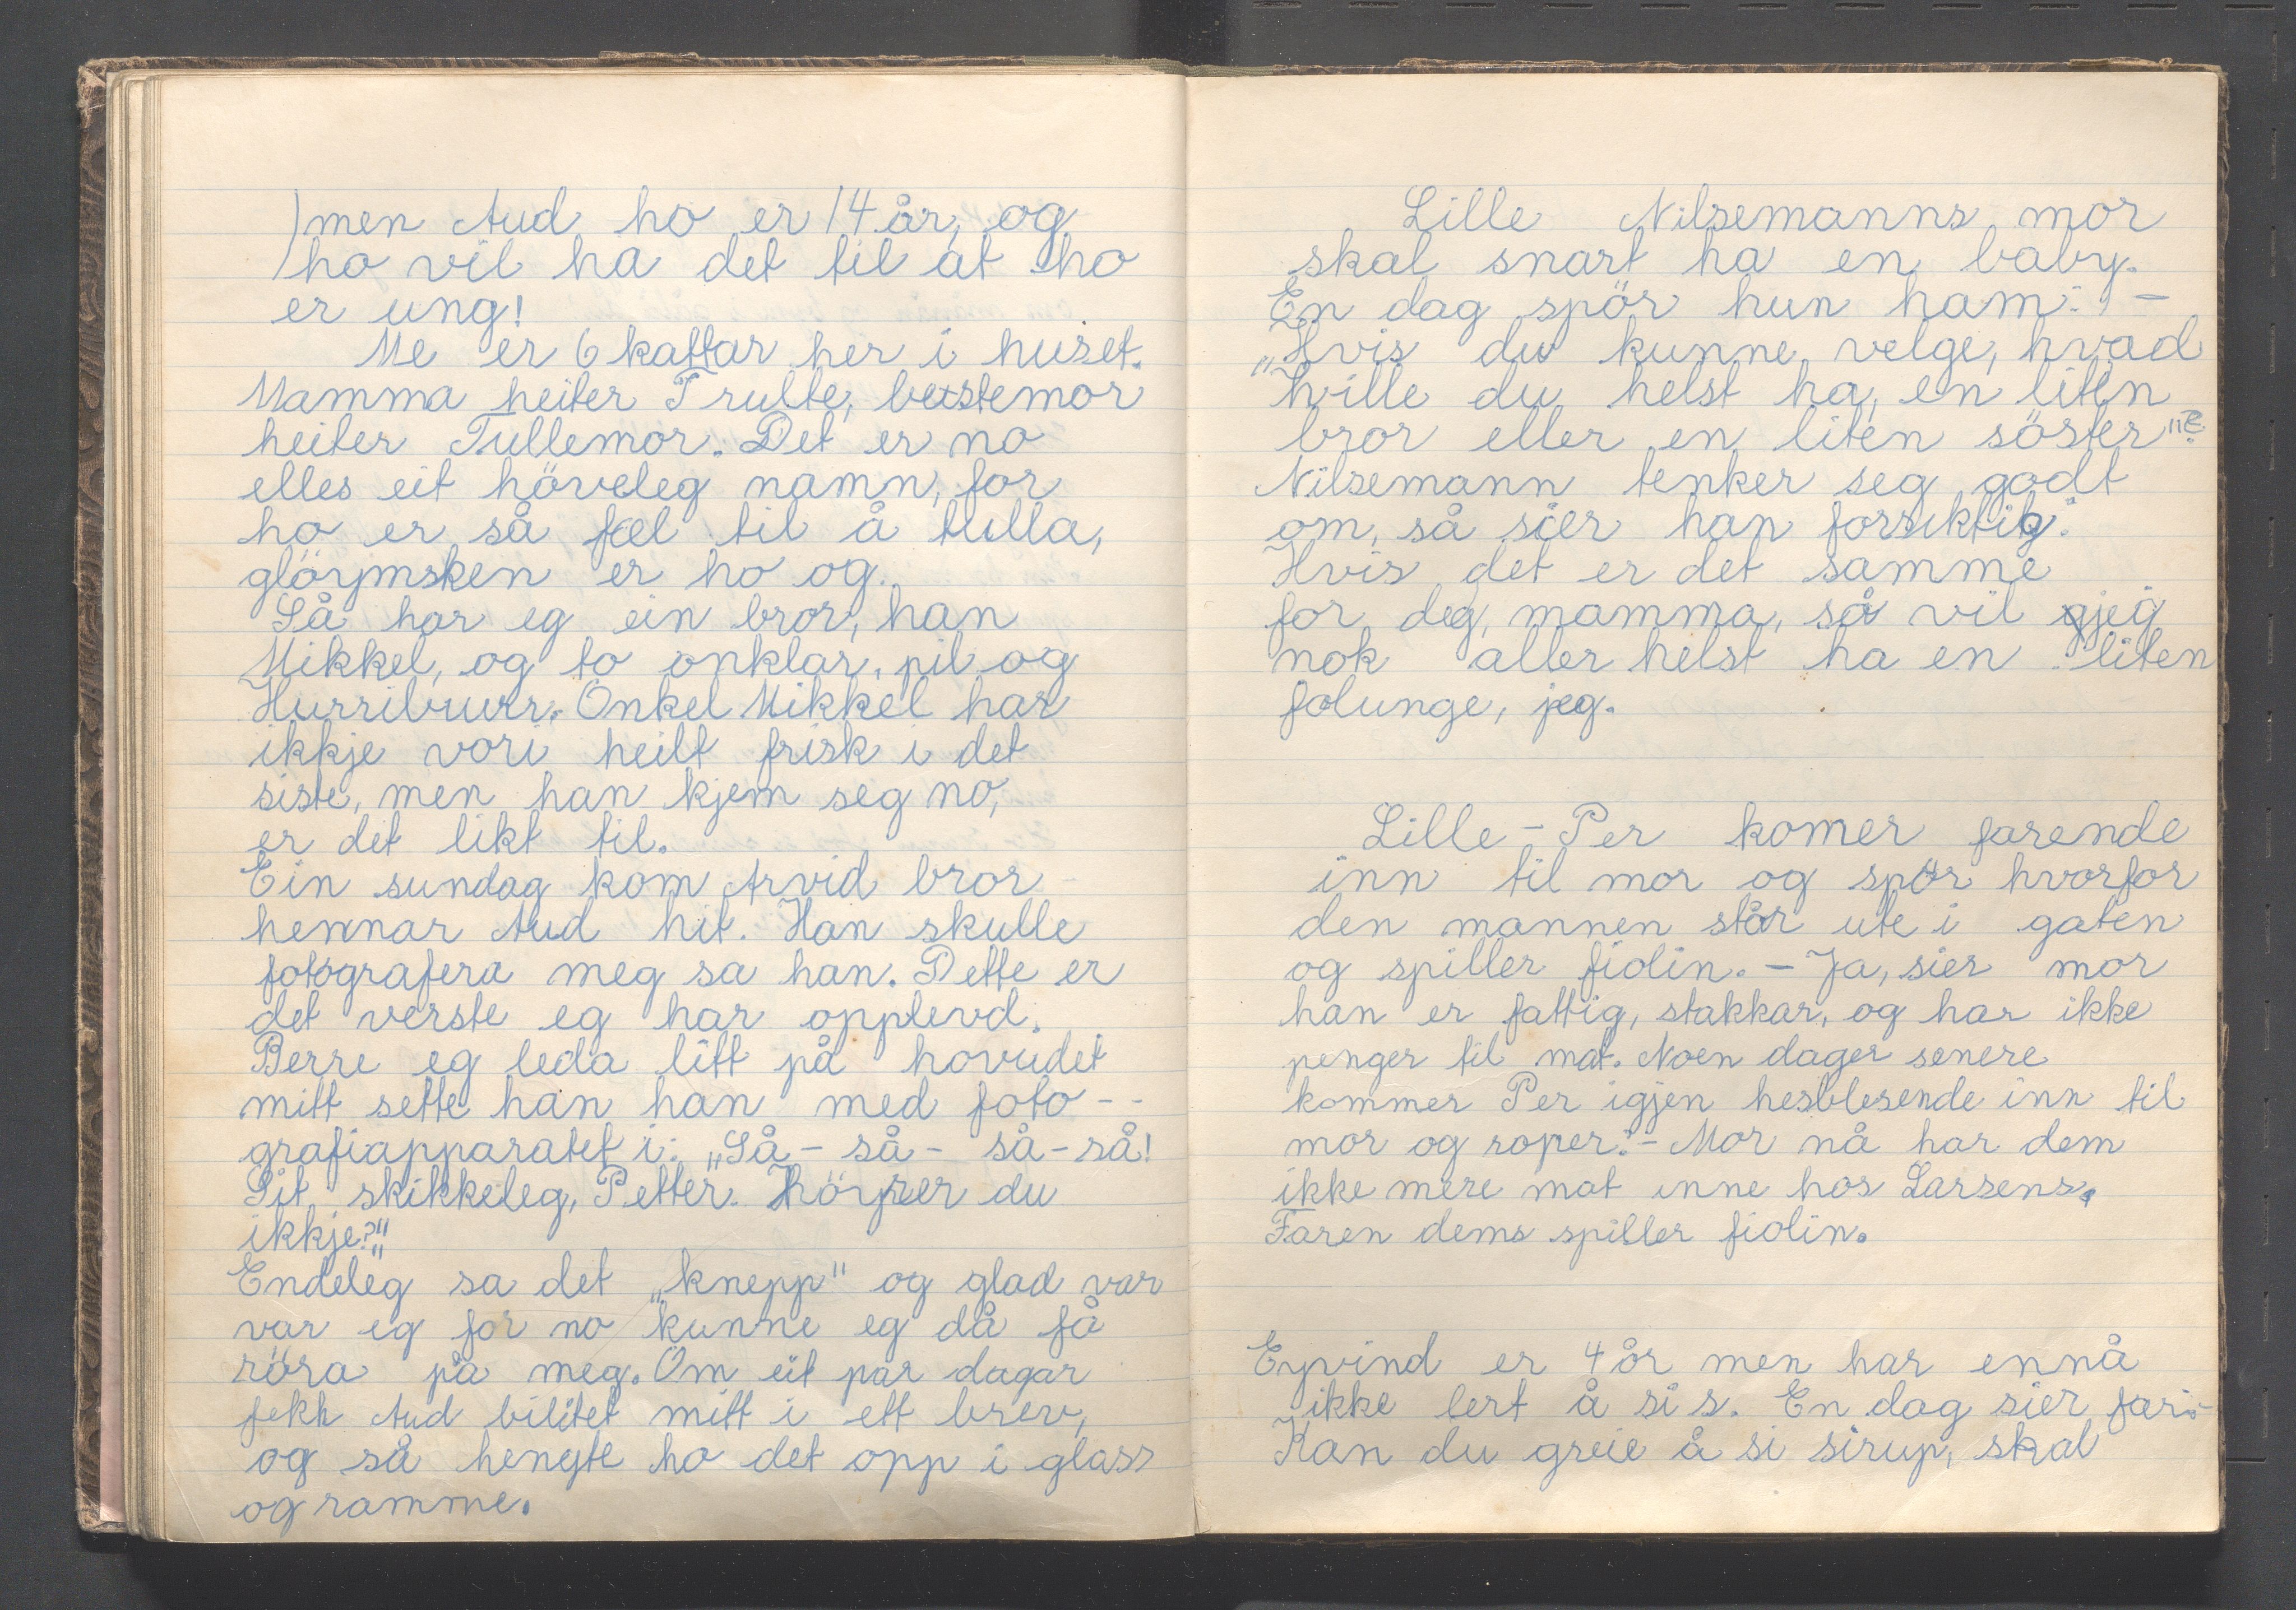 men Aud ho er 14 år, og
ho vil ha det til at ho
er ung!
Me er 6 kattar her i huset.
Mamma heiter Trulte, bestemor
heiter Tullemor. Det er no
elles eit höveleg namn, for
ho er så fæl til å tulla,
glöymsken er ho og.
Så har eg ein bror, han
Mikkel, og to onklar, pil og
Hurriburr. Onkel Mikkel har
ikkje vori heilt frisk i det
siste, men han kjem seg no,
er det likt til.
Ein sundag kom Arvid bror
hennar Aud hit. Han skulle
fotografera meg sa han. Dette er
det verste eg har opplevd.
Berre eg leda litt på hovudet
mitt sette han han med foto--
grafiapparatet i: „Så - så - så - så!
Sit skikkeleg, Petter. Höyrer du
ikkje?"
Endeleg sa det „knepp" og glad var
var eg for no kunne eg då få
röra på meg. Om eit par dagar
fekk Aud biletet mitt i ett brev,
og så hengte ho det opp i glass
og ramme.
Lille Nilsemanns mor
skal snart ha en baby.
En dag spör hun ham: -
„Hvis du kunne velge, hvad
ville du helst ha, en liten
bror eller en liten söster"?
Nilsemann tenker seg godt
om, så sier han forsiktig:
Hvis det er det samme
for deg, mamma, så vil jeg
nok aller helst ha en liten
folunge, jeg.
Lille-Per komer farende
inn til mor og spör hvorfor
den mannen står ute i gaten
og spiller fiolin. - Ja, sier mor
han er fattig, stakkar, og har ikke
penger til mat. Noen dager senere
kommer Per igjen hesblesende inn til
mor og roper: - Mor nå har dem
ikke mere mat inne hos Larsens.
Faren dems spiller fiolin.
Eyvind er 4 år men har ennå
ikke lert å si s. En dag sier far: -
Kan du greie å si sirup, skal